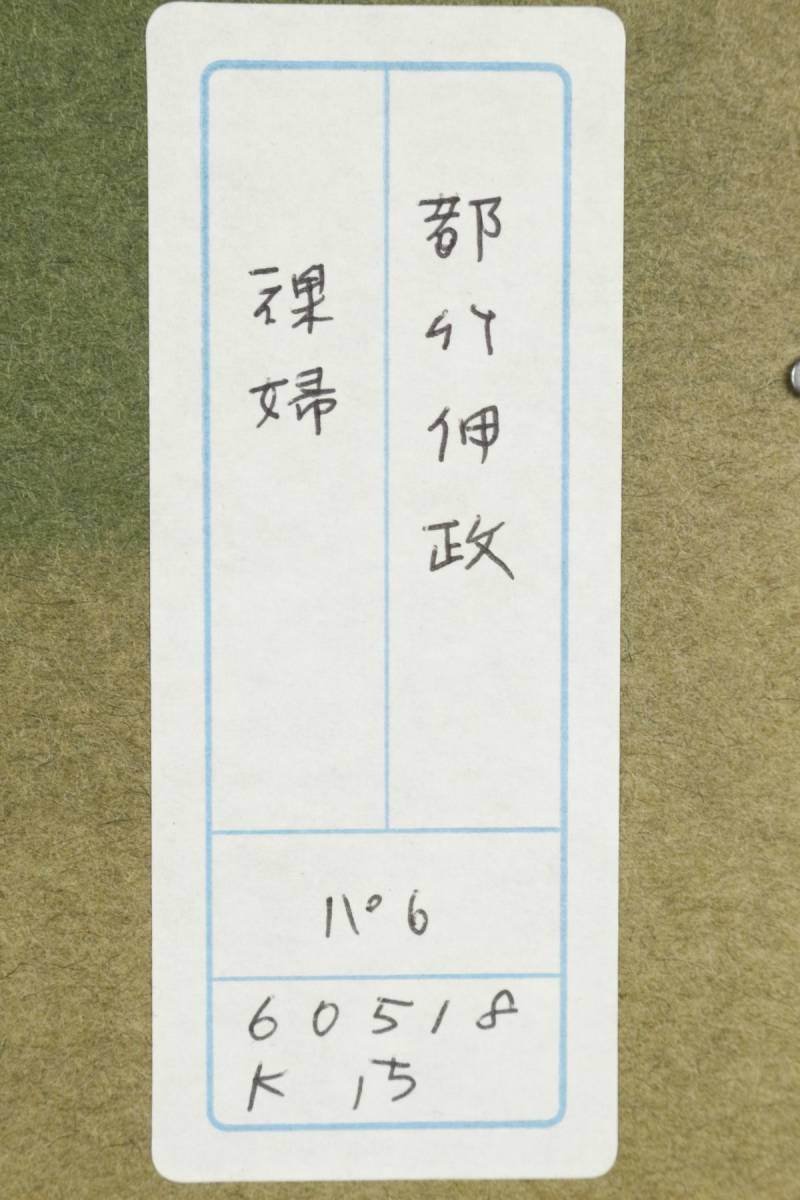 都竹伸政
裸婦
パ6
60518
K 15